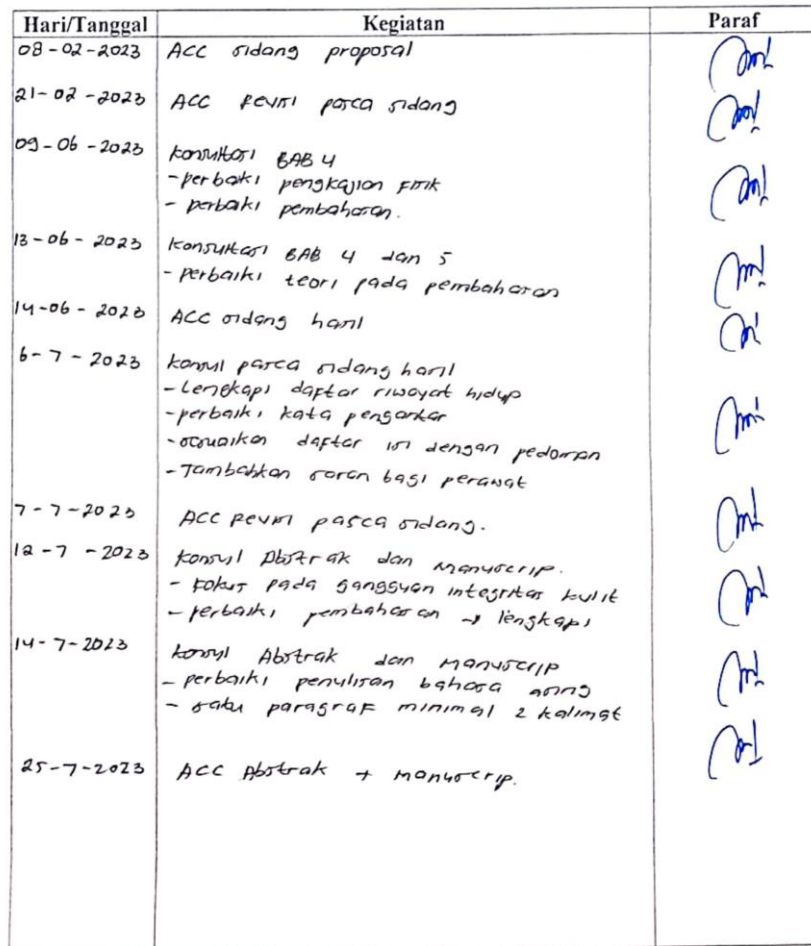 Hari/Tanggal Kegiatan Paraf
08-02-2023 ACC sidang proposal
21-02-2023 ACC Revisi pasca sidang
09-06-2023 konsultasi BAB 4
- perbaiki pengkajian Fisik
- perbaiki pembahasan.
13-06-2023 Konsultasi BAB 4 dan 5
- perbaiki teori pada pembahasan
14-06-2023 ACC sidang hasil
6-7-2023 konsul pasca sidang hasil
- Lengkapi daftar riwayat hidup
- perbaiki kata pengantar
- sesuaikan daftar isi dengan pedoman
- Tambahkan saran bagi perawat
7-7-2023 ACC Revisi pasca sidang.
12-7-2023 konsul Abstrak dan manuscrip.
- Fokus pada gangguan integritas kulit
- perbaiki pembahasan → lengkapi
14-7-2023 konsul Abstrak dan manuscrip
- perbaiki penulisan bahasa asing
- satu paragraf minimal 2 kalimat
25-7-2023 ACC Abstrak + manuscrip.